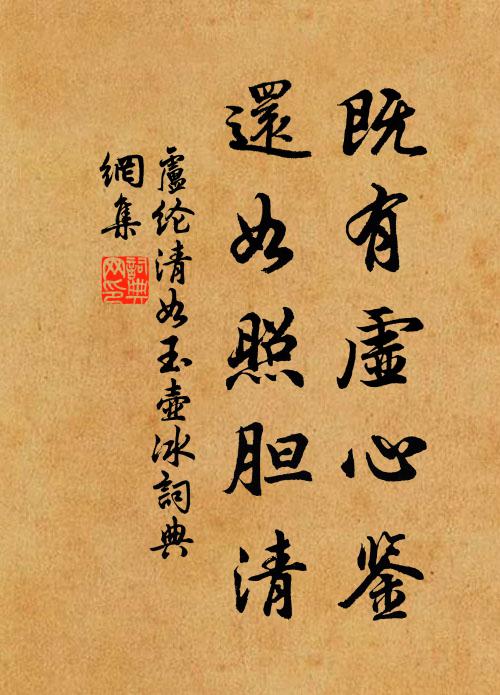 既有虚心鉴
還如照胆清
盧纶清如玉壺冰詞典
網集
詞典
网印